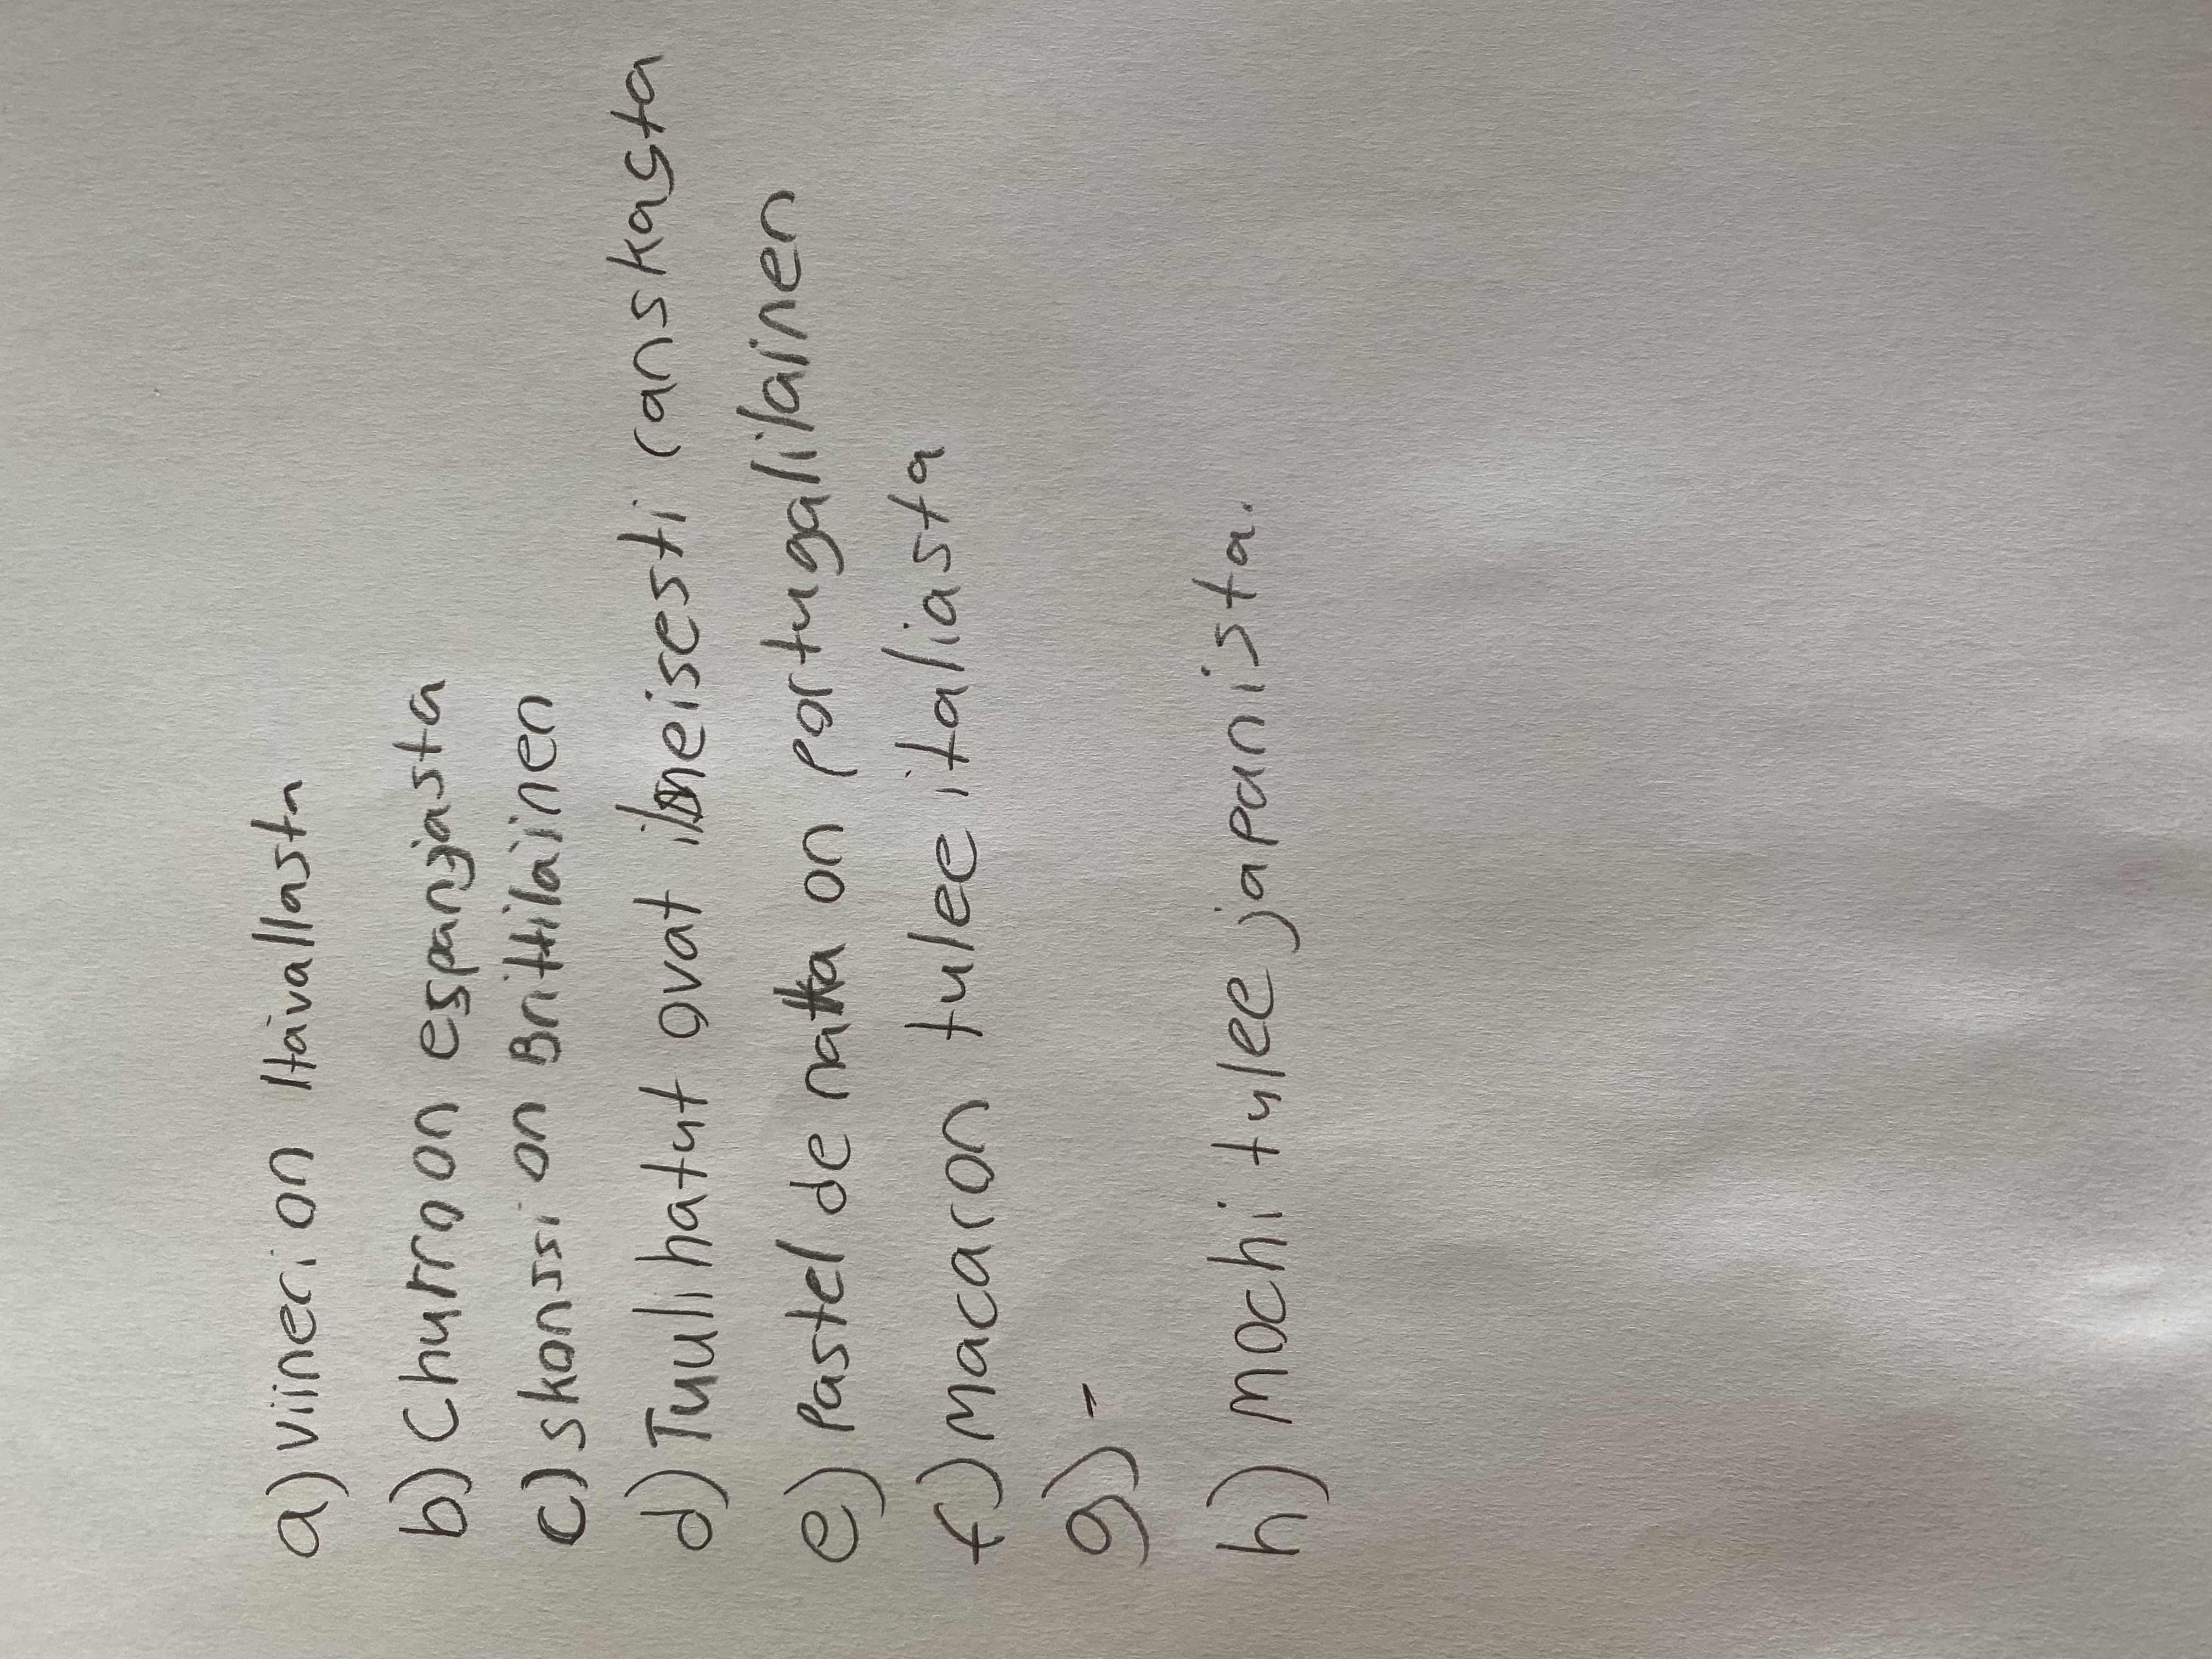 a) viineri on Itävallasta
b) Churro on espanjasta
c) skonssi on Brittiläinen
d) Tuulihatut ovat ilmeisesti ranskasta
e) Pastel de natta on portugalilainen
f) macaron tulee italiasta
g) -
h) mochi tulee japanista.